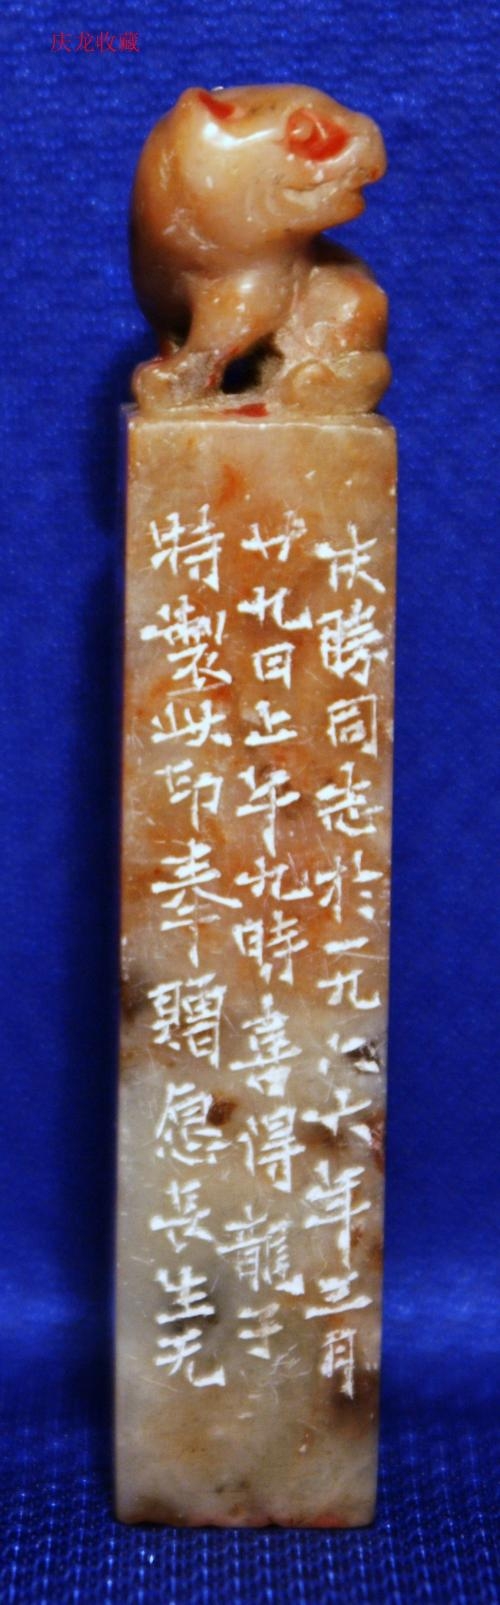 庆龙收藏
庆勝同志於一九八六年三月
廿九日上午九時喜得龍子
特製此印奉贈愿長生无